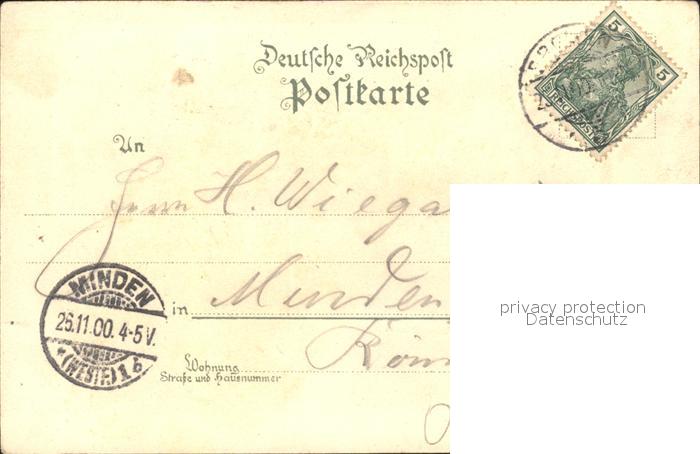 Deutsche Reichspost
Postkarte
5
5
REICHSPOST
An
Herrn H. Wiega
MINDEN
26.11.00. 4-5 V.
*(WESTF.) 1 b
in Minden
Wohnung
Straße und Hausnummer
privacy protection
Datenschutz